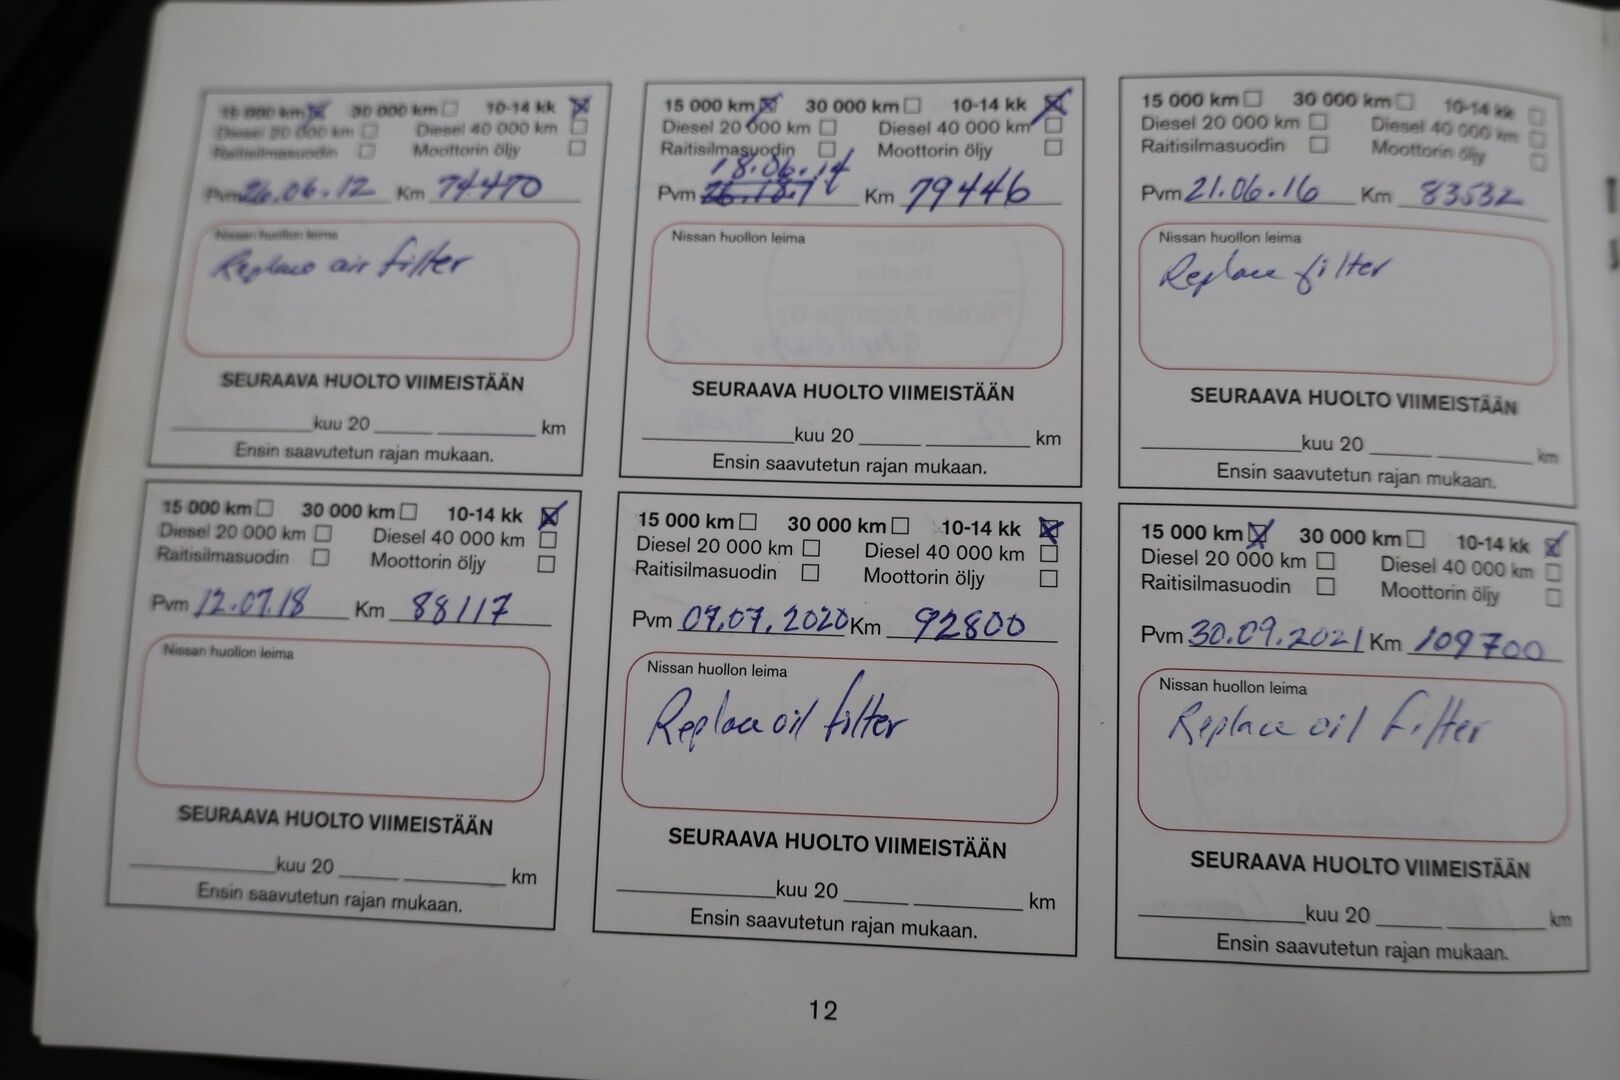 15 000 km 30 000 km 10-14 kk
Diesel 20 000 km Diesel 40 000 km
Raitisilmasuodin Moottorin öljy
Pvm 26.06.12 Km 74470
Nissan huollon leima
Replace air filter
SEURAAVA HUOLTO VIIMEISTÄÄN
kuu 20 km
Ensin saavutetun rajan mukaan.
15 000 km 30 000 km 10-14 kk
Diesel 20 000 km Diesel 40 000 km
Raitisilmasuodin Moottorin öljy
18.06.14
Pvm Km 79446
Nissan huollon leima
SEURAAVA HUOLTO VIIMEISTÄÄN
kuu 20 km
Ensin saavutetun rajan mukaan.
15 000 km 30 000 km 10-14 kk
Diesel 20 000 km Diesel 40 000 km
Raitisilmasuodin Moottorin öljy
Pvm 21.06.16 Km 83532
Nissan huollon leima
Replace filter
SEURAAVA HUOLTO VIIMEISTÄÄN
kuu 20 km
Ensin saavutetun rajan mukaan.
15 000 km 30 000 km 10-14 kk
Diesel 20 000 km Diesel 40 000 km
Raitisilmasuodin Moottorin öljy
Pvm 12.07.18 Km 88117
Nissan huollon leima
SEURAAVA HUOLTO VIIMEISTÄÄN
kuu 20 km
Ensin saavutetun rajan mukaan.
15 000 km 30 000 km 10-14 kk
Diesel 20 000 km Diesel 40 000 km
Raitisilmasuodin Moottorin öljy
Pvm 07.07.2020 Km 92800
Nissan huollon leima
Replace oil filter
SEURAAVA HUOLTO VIIMEISTÄÄN
kuu 20 km
Ensin saavutetun rajan mukaan.
15 000 km 30 000 km 10-14 kk
Diesel 20 000 km Diesel 40 000 km
Raitisilmasuodin Moottorin öljy
Pvm 30.09.2021 Km 109700
Nissan huollon leima
Replace oil filter
SEURAAVA HUOLTO VIIMEISTÄÄN
kuu 20 km
Ensin saavutetun rajan mukaan.
12